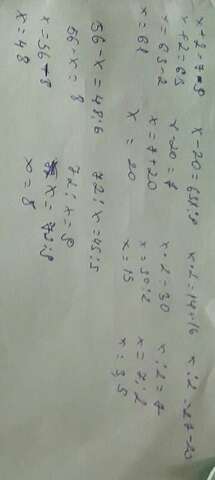 x+2=7·9 x-20=63:9 x·2=14+16 x:2=27-20
x+2=63 x-20=7 x·2=30 x:2=7
x=63-2 x=7+20 x=30:2 x=7:2
x=61 x=20 x=15 x=3,5
56-x=48:6 72:x=45:5
56-x=8 72:x=9
x=56-8 x=72:9
x=48 x=8